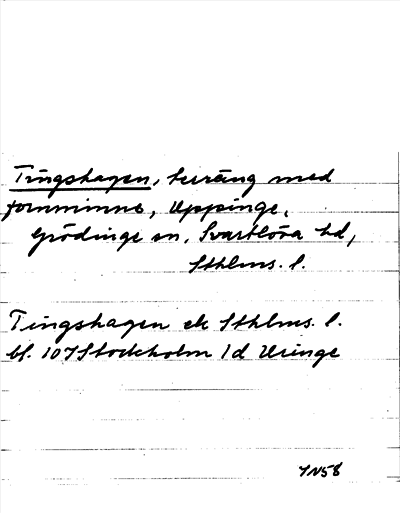 Tingshagen, terräng med
fornminne, Uppinge,
Grödinge sn, Svartlösa hd,
Sthlms. l.
Tingshagen ek Sthlms. l.
bl. 107 Stockholm 1d Uringe
1958